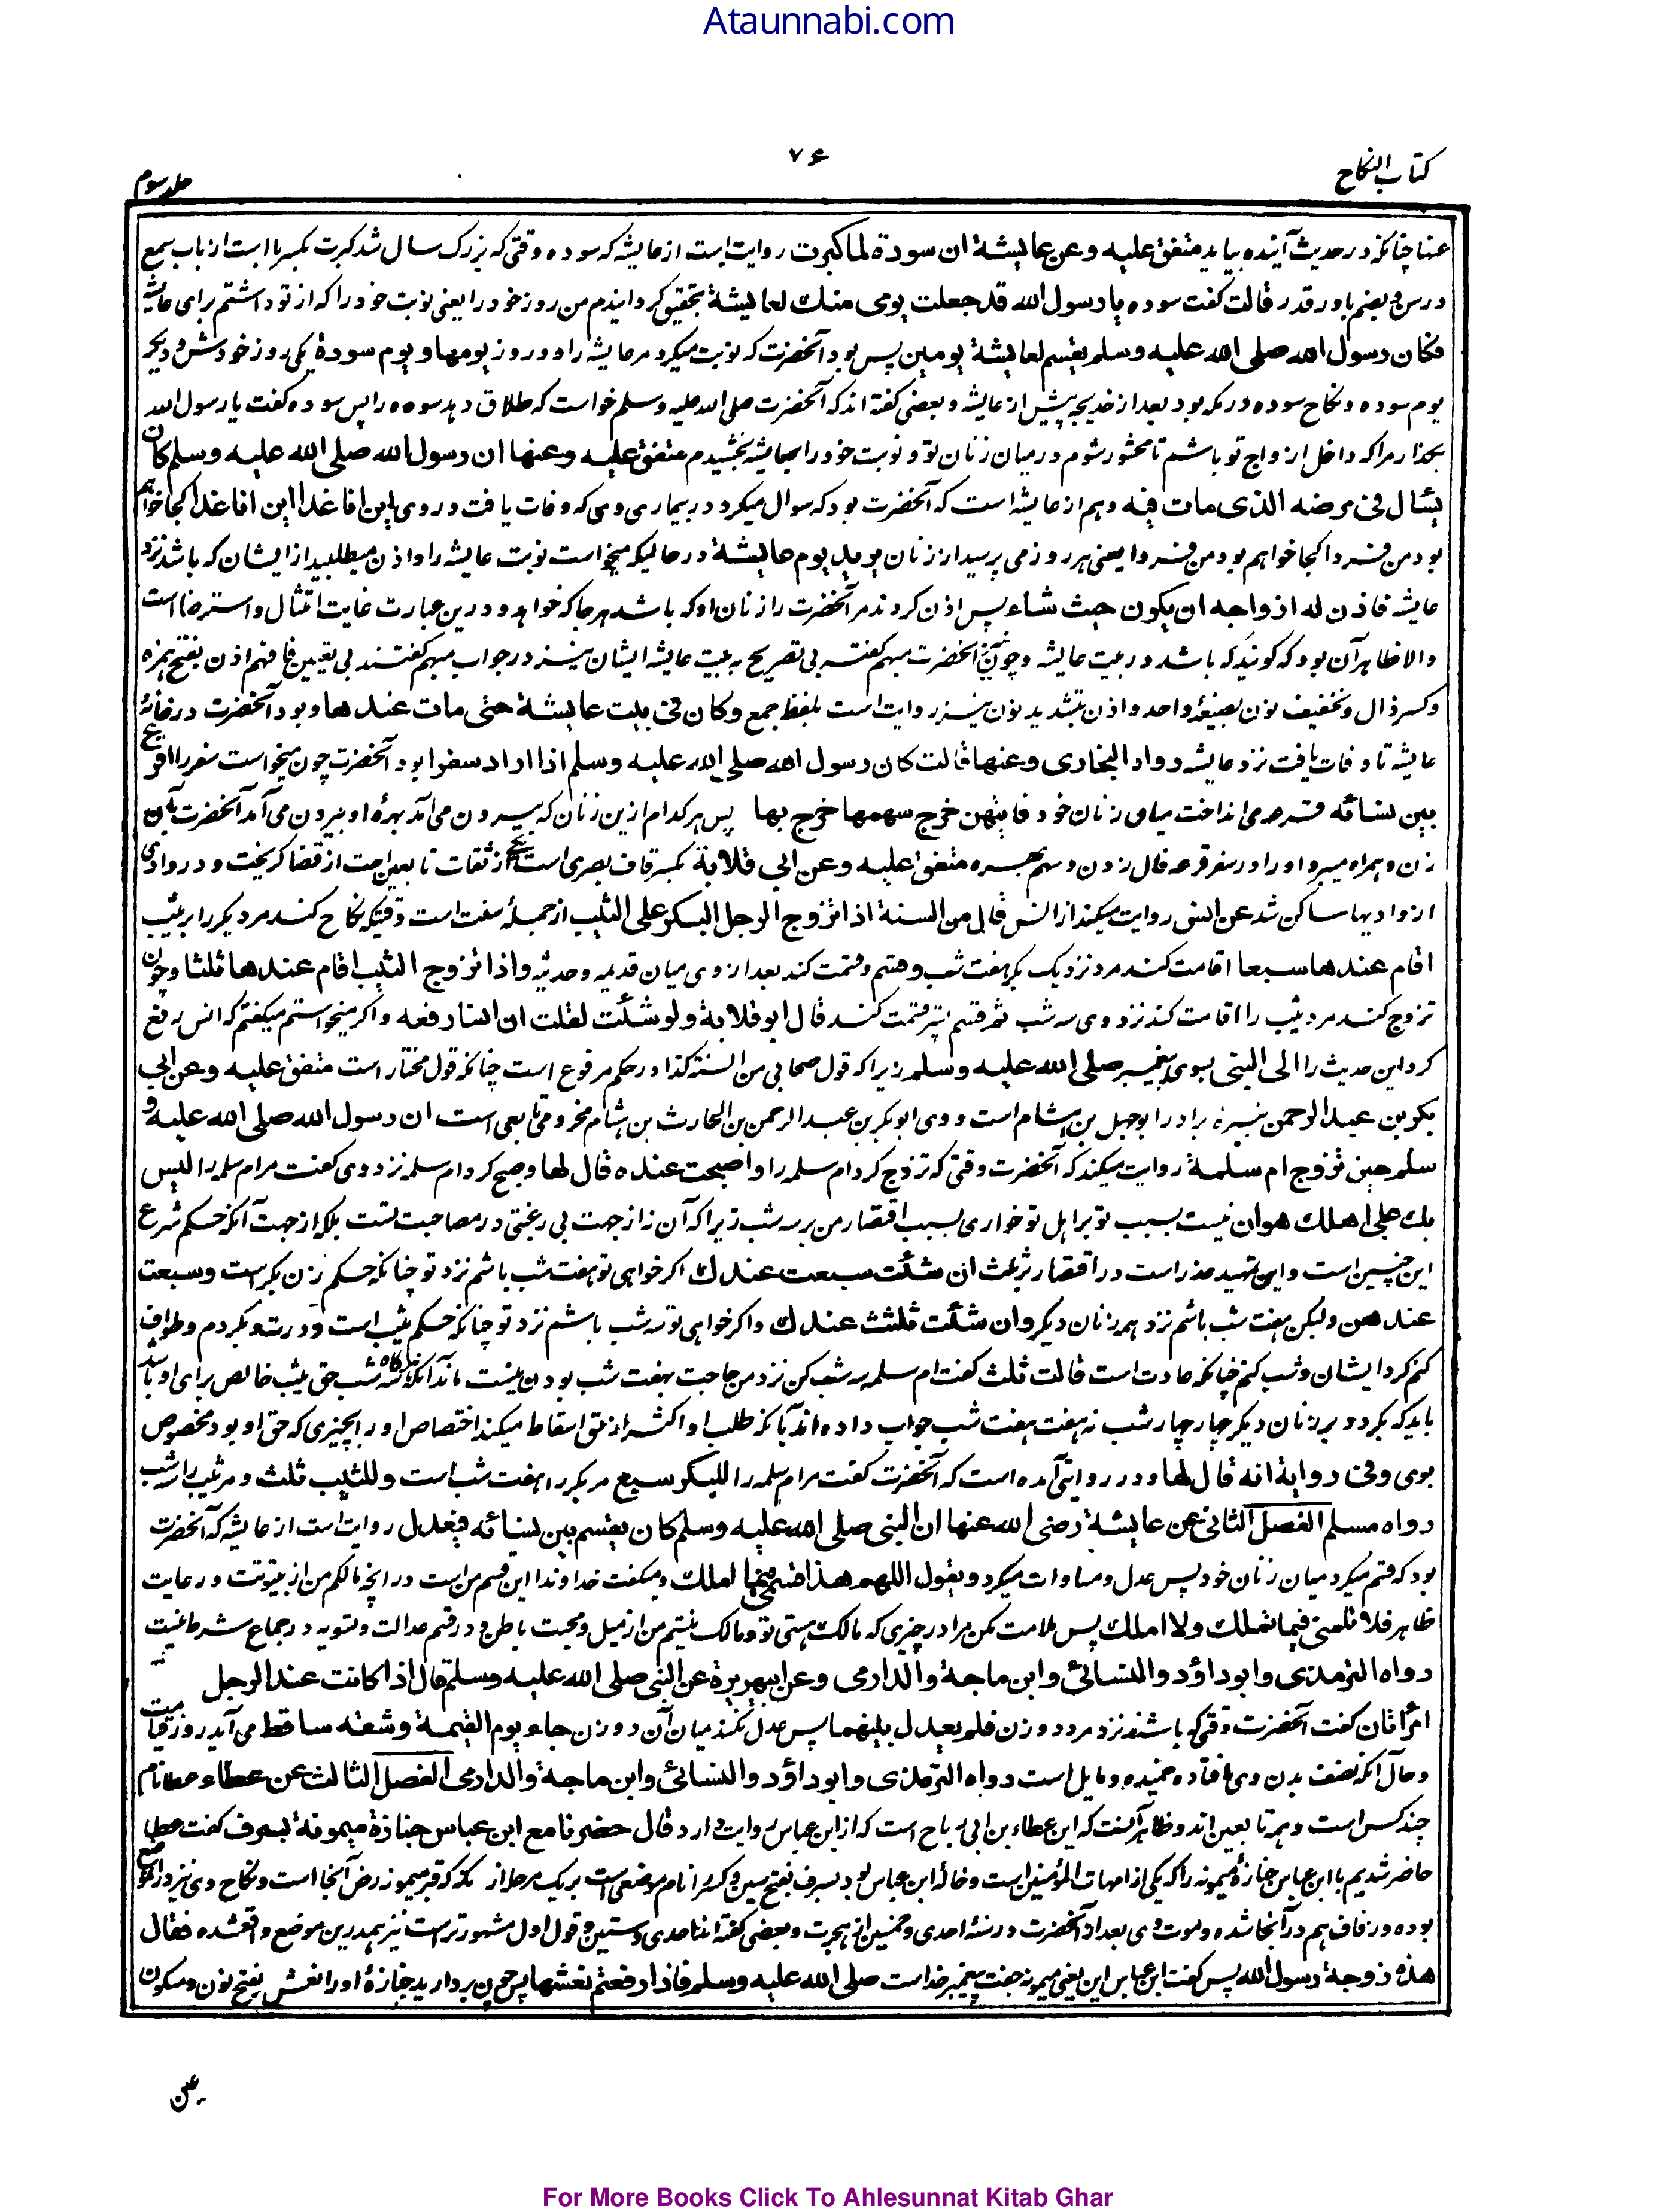 Ataunnabi.com
کتاب النکاح
۷۶
جلد سوم
عنها چنانکه در حدیث آینده بیاید متفق علیه وعن عایشة ان سودة لما کبرت روایت است از عایشه که سوده وقتی که بزرک سال شد کبرت بکسر با است از باب سمع
درس و بضم با و رقدر قالت کفت سوده یا رسول الله قد جعلت یومی منك لعایشة بتحقیق کردانیدم من روز خود را یعنی نوبت خود را که از تو داشتم برای عایشه
فکان رسول الله صلی الله علیه وسلم یقسم لعایشة یومین پس بود آنحضرت که نوبت میکرد مر عایشه را دو روز یومها ویوم سودة یکی روز خودش و دیکر
یوم سوده و نکاح سوده در مکه بود بعد از خدیجه پیش از عایشه و بعضی کفته اند که آنحضرت صلی الله علیه وسلم خواست که طلاق دهد سوده را پس سوده کفت یا رسول الله
بکذار مرا که داخل ازواج تو باشم تا محشور شوم در میان زنان تو و نوبت خود را بعایشه بخشیدم متفق علیه وعنها ان رسول الله صلی الله علیه وسلم کان
یسأل فی مرضه الذی مات فیه وهم از عایشه است که آنحضرت بود که سوال میکرد در بیماری وی که وفات یافت در وی این انا غدا این انا غدا کجا خواهم
بود من فردا کجا خواهم بود من فردا یعنی هر روز می پرسید از زنان یرید یوم عایشة در حالیکه میخواست نوبت عایشه را و اذن میطلبید از ایشان که باشد نزد
عایشه فاذن له ازواجه ان یکون حیث شاء پس اذن کردند مر آنحضرت را زنان او که باشد هر جا که خواهد و درین عبارت غایت امتثال و استرضا است
والا ظاهر آن بود که کویند که باشد در بیت عایشه و چون آنحضرت مبهم کفت بی تصریح به بیت عایشه ایشان نیز در جواب مبهم کفتند بی تعیین فافهم اذن بفتح همزه
وکسر ذال وتخفیف نون بصیغهٔ واحد و اذن بتشدید نون نیز روایت است بلفظ جمع وکان فی بیت عایشة حتی مات عندها وبود آنحضرت در خانهٔ
عایشه تا وفات یافت نزد عایشه رواه البخاری وعنها قالت کان رسول الله صلی الله علیه وسلم اذا اراد سفرا بود آنحضرت چون میخواست سفر را اقرع
بین نسائه قرعه می انداخت میان زنان خود فایتهن خرج سهمها خرج بها پس هر کدام ازین زنان که بیرون می آمد بهرهٔ او بیرون می آمد آنحضرت بآن
زن و همراه میبرد او را در سفر قرعه فال زدن و سهم بهره متفق علیه وعن ابی قلابة بکسر قاف بصری است از ثقات تابعین است از قضا کریخت و در وادی
از وادیها ساکن شد عن انس روایت میکند از انس قال من السنة اذا تزوج الرجل البکر علی الثیب از جملهٔ سنت است وقتیکه نکاح کند مرد بکر را بر ثیب
اقام عندها سبعا اقامت کند مرد نزدیک بکر هفت شب وقسم وقسمت کند بعد از وی میان قدیمه و حدیثه واذا تزوج الثیب اقام عندها ثلثا وچون
تزوج کند مرد ثیب را اقامت کند نزد وی سه شب ثم قسم پستر قسمت کند قال ابو قلابة ولو شئت لقلت ان انسا رفعه واکر میخواستم میکفتم که انس رفع
کرد این حدیث را الی النبی بسوی پیغمبر صلی الله علیه وسلم زیرا که قول صحابی من السنة کذا در حکم مرفوع است چنانکه قول مختار است متفق علیه وعن ابی
بکر بن عبد الرحمن نبیرهٔ برادر ابوجهل بن هشام است و وی ابوبکر بن عبد الرحمن بن الحارث بن هشام مخزومی تابعی است ان رسول الله صلی الله علیه و
سلم حین تزوج ام سلمة روایت میکند که آنحضرت وقتی که تزوج کرد ام سلمه را واصبحت عنده قال لها وصبح کرد ام سلمه نزد وی کفت مر ام سلمه را لیس
بك علی اهلك هوان نیست بسبب تو بر اهل تو خواری بسبب اقتصار من بر سه شب زیرا که آن نه از جهت بی رغبتی در مصاحبت تست بلکه از جهت آنکه حکم شرع
این چنین است و این تمهید عذر است در اقتصار بر ثلث ان شئت سبعت عندك اکر خواهی تو هفت شب باشم نزد تو چنانکه حکم زن بکر است وسبعت
عندهن ولیکن هفت شب باشم نزد همه زنان دیکر وان شئت ثلثت عندك واکر خواهی تو سه شب باشم نزد تو چنانکه حکم ثیب است ودرت وبکردم وطواف
کنم کرد ایشان وشب کنم چنانکه عادت است قالت ثلث کفت ام سلمه سه شب کن نزد من حاجت بهفت شب بودن نیست ماند آنکه هرکاه سه شب حق ثیب خالص برای او باشد
باید که بکردد بر زنان دیکر چار چهار شب نه هفت هفت شب جواب داده اند بآنکه طلب او اکثر از حق اسقاط میکند اختصاص او را بچیزی که حق او بود مخصوص
بوی وفی روایة انه قال لها ودر روایتی آمده است که آنحضرت کفت مر ام سلمه را للبکر سبع مر بکر را هفت شب است وللثیب ثلث ومر ثیب را سه شب
رواه مسلم الفصل الثانی عن عایشة رضی الله عنها ان النبی صلی الله علیه وسلم کان یقسم بین نسائه فیعدل روایت است از عایشه که آنحضرت
بود که قسم میکرد میان زنان خود پس عدل ومساوات میکرد ویقول اللهم هذا قسمی فیما املك ومیکفت خداوندا این قسم من است در آنچه مالکم من از بیتوتت و رعایت
ظاهر فلا تلمنی فیما تملك ولا املك پس ملامت مکن مرا در چیزی که مالک هستی تو ومالک نیستم من از میل ومحبت باطن و در قسم عدالت وتسویه در جماع شرط نیست
رواه الترمذی وابوداؤد والنسائی وابن ماجة والدارمی وعن ابی هریرة عن النبی صلی الله علیه وسلم قال اذا کانت عند الرجل
امرأتان کفت آنحضرت وقتی که باشند نزد مرد دو زن فلم یعدل بینهما پس عدل نکند میان آن دو زن جاء یوم القیمة وشقه ساقط می آید روز قیامت
وحال آنکه نصف بدن وی افتاده خمیده ومایل است رواه الترمذی وابوداؤد والنسائی وابن ماجة والدارمی الفصل الثالث عن عطاء عطا نام
چند کس است وهمه تابعین اند وظاهر آنست که این عطاء بن ابی رباح است که از ابن عباس روایت دارد قال حضرنا مع ابن عباس جنازة میمونة بسرف کفت عطا
حاضر شدیم با ابن عباس جنازهٔ میمونه را که یکی از امهات المؤمنین است وخالهٔ ابن عباس بود بسرف بفتح سین وکسر را نام موضعی است بر یک مرحله از مکه که قبر میمونه رض آنجا است ونکاح وی نیز در آن موضع
بوده وزفاف هم در آنجا شده وموت وی بعد از آنحضرت در سنه احدی وخمسین از هجرت وبعضی کفته اند احدی وستین وقول اول مشهورتر است نیز همدرین موضع واقع شده فقال
هذه زوجة رسول الله پس کفت ابن عباس این یعنی میمونه جفت پیغمبر خداست صلی الله علیه وسلم فاذا رفعتم نعشها پس چون بردارید جنازهٔ او را نعش بفتح نون وسکون
عین
For More Books Click To Ahlesunnat Kitab Ghar